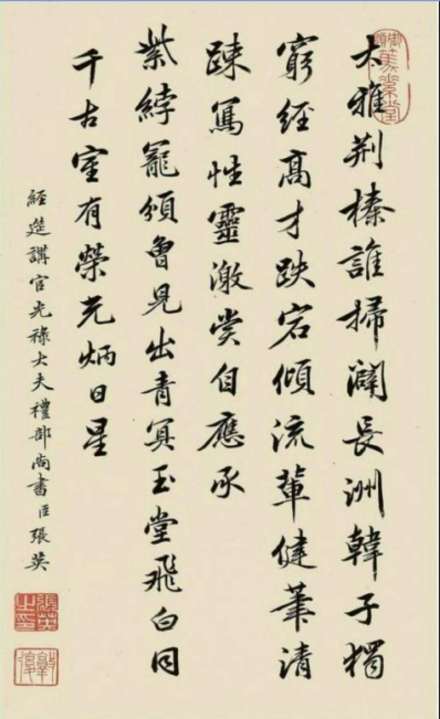 大雅荆榛誰掃闢長洲韓子獨
窮經高才跌宕傾流輩健筆清
踈寫性靈激賞自應承
紫綍寵頒曾見出青冥玉堂飛白同
千古室有榮光炳日星
經筵講官光祿大夫禮部尚書臣張英
張英之印
敦復